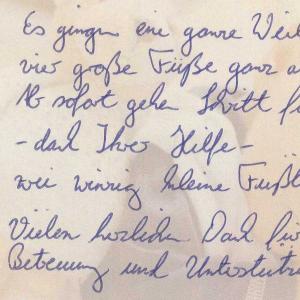 Es gingen eine ganze Weil
vier große Füße ganz a
Ab sofort gehen Schritt fü
- dank Ihrer Hilfe -
zwei winzig kleine Füßl
Vielen herzlichen Dank für
Betreuung und Unterstütz